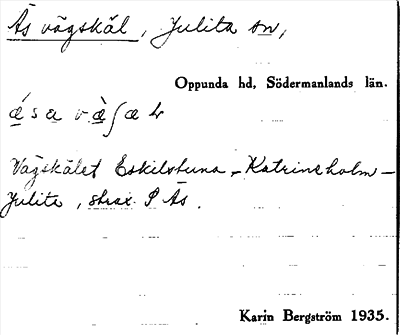 Ås vägskäl, Julita sn,
Oppunda hd, Södermanlands län.
Vägskälet Eskilstuna – Katrineholm –
Julita, strax P Ås.
Karin Bergström 1935.